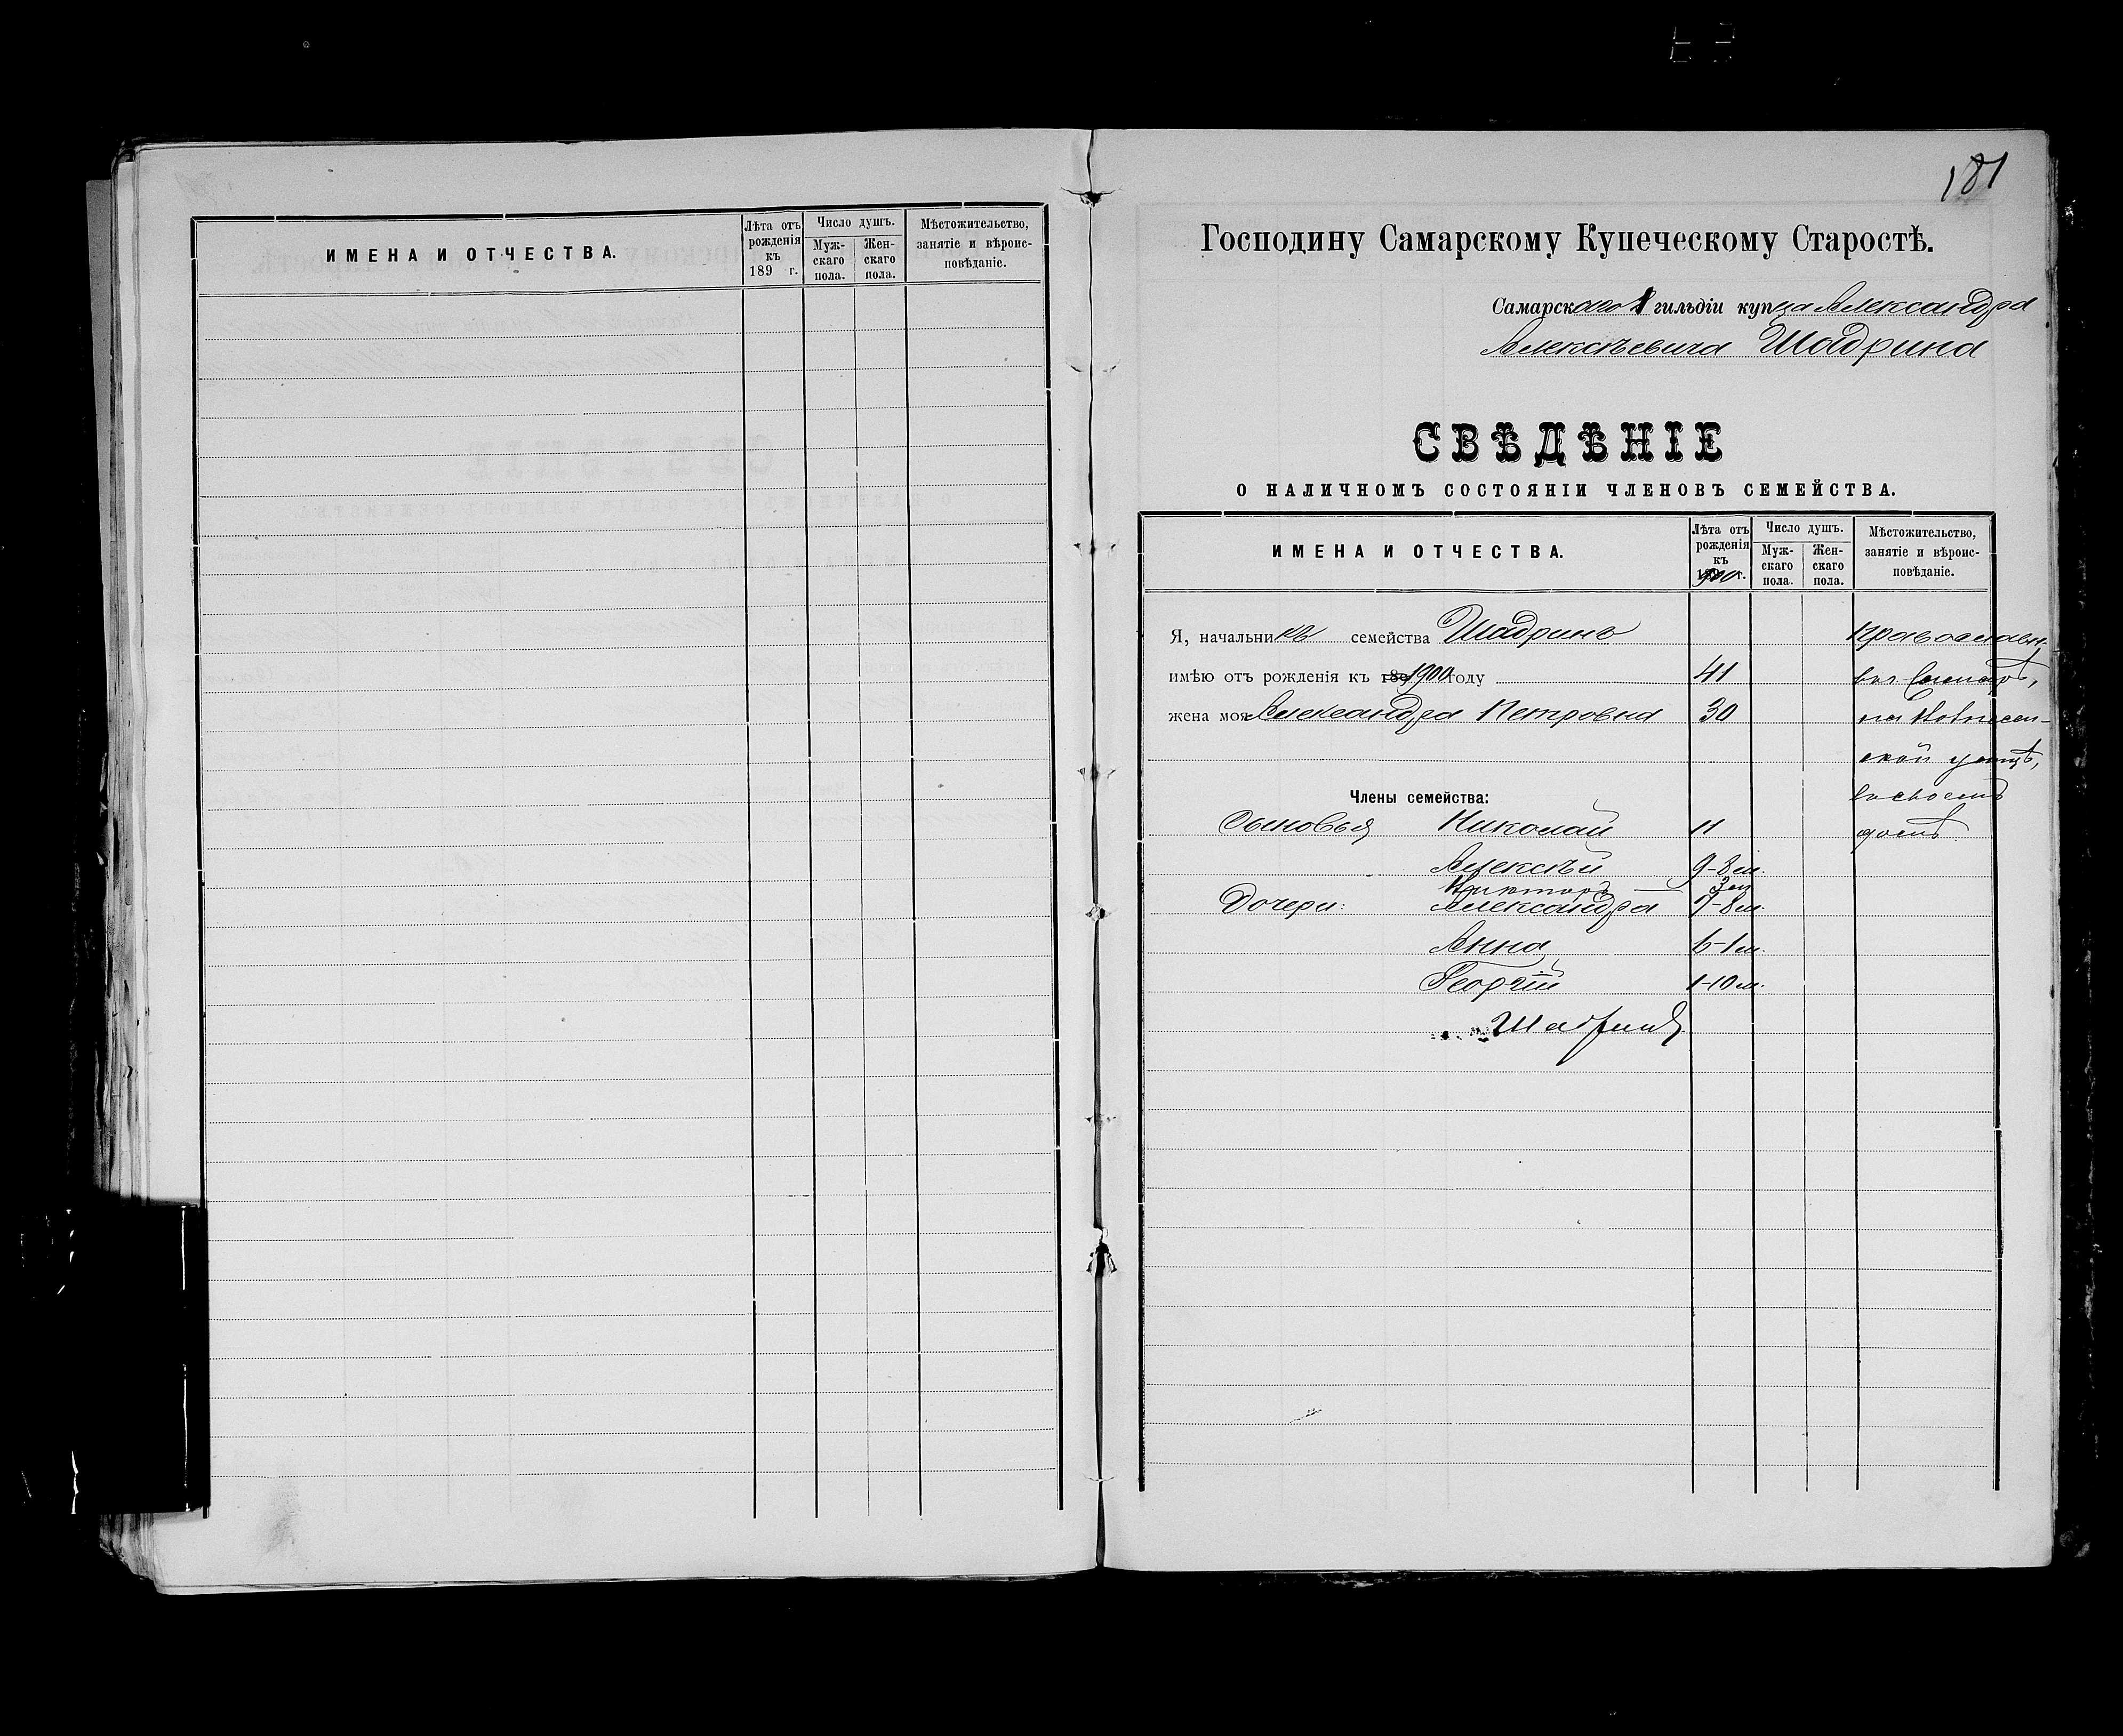 ИМЕНА И ОТЧЕСТВА.
Лѣта отъ рожденія къ 189 г.
Число душъ.
Мужскаго пола.
Женскаго пола.
Мѣстожительство, занятіе и вѣроисповѣданіе.
181
Господину Самарскому Купеческому Старостѣ.
Самарскаго гильдіи купца Александра
Алексѣевича Шадрина
СВѢДѢНІЕ
О НАЛИЧНОМЪ СОСТОЯНІИ ЧЛЕНОВЪ СЕМЕЙСТВА.
ИМЕНА И ОТЧЕСТВА.
Лѣта отъ рожденія къ 1900 г.
Число душъ.
Мужскаго пола.
Женскаго пола.
Мѣстожительство, занятіе и вѣроисповѣданіе.
Я, начальникъ семейства Шадринъ православн.
имѣю отъ рожденія къ 189 1900 году 41 въ Самарѣ,
жена моя Александра Петровна 30 на Вознесен-
ской улицѣ,
Члены семейства: въ своемъ
Сыновья Николай 11 домѣ.
Алексѣй 9-8 м.
Викторъ — 3 м
Дочери: Александра 7-8 м.
Анна 6-1 м.
Георгій 1-10 м.
Шадринъ